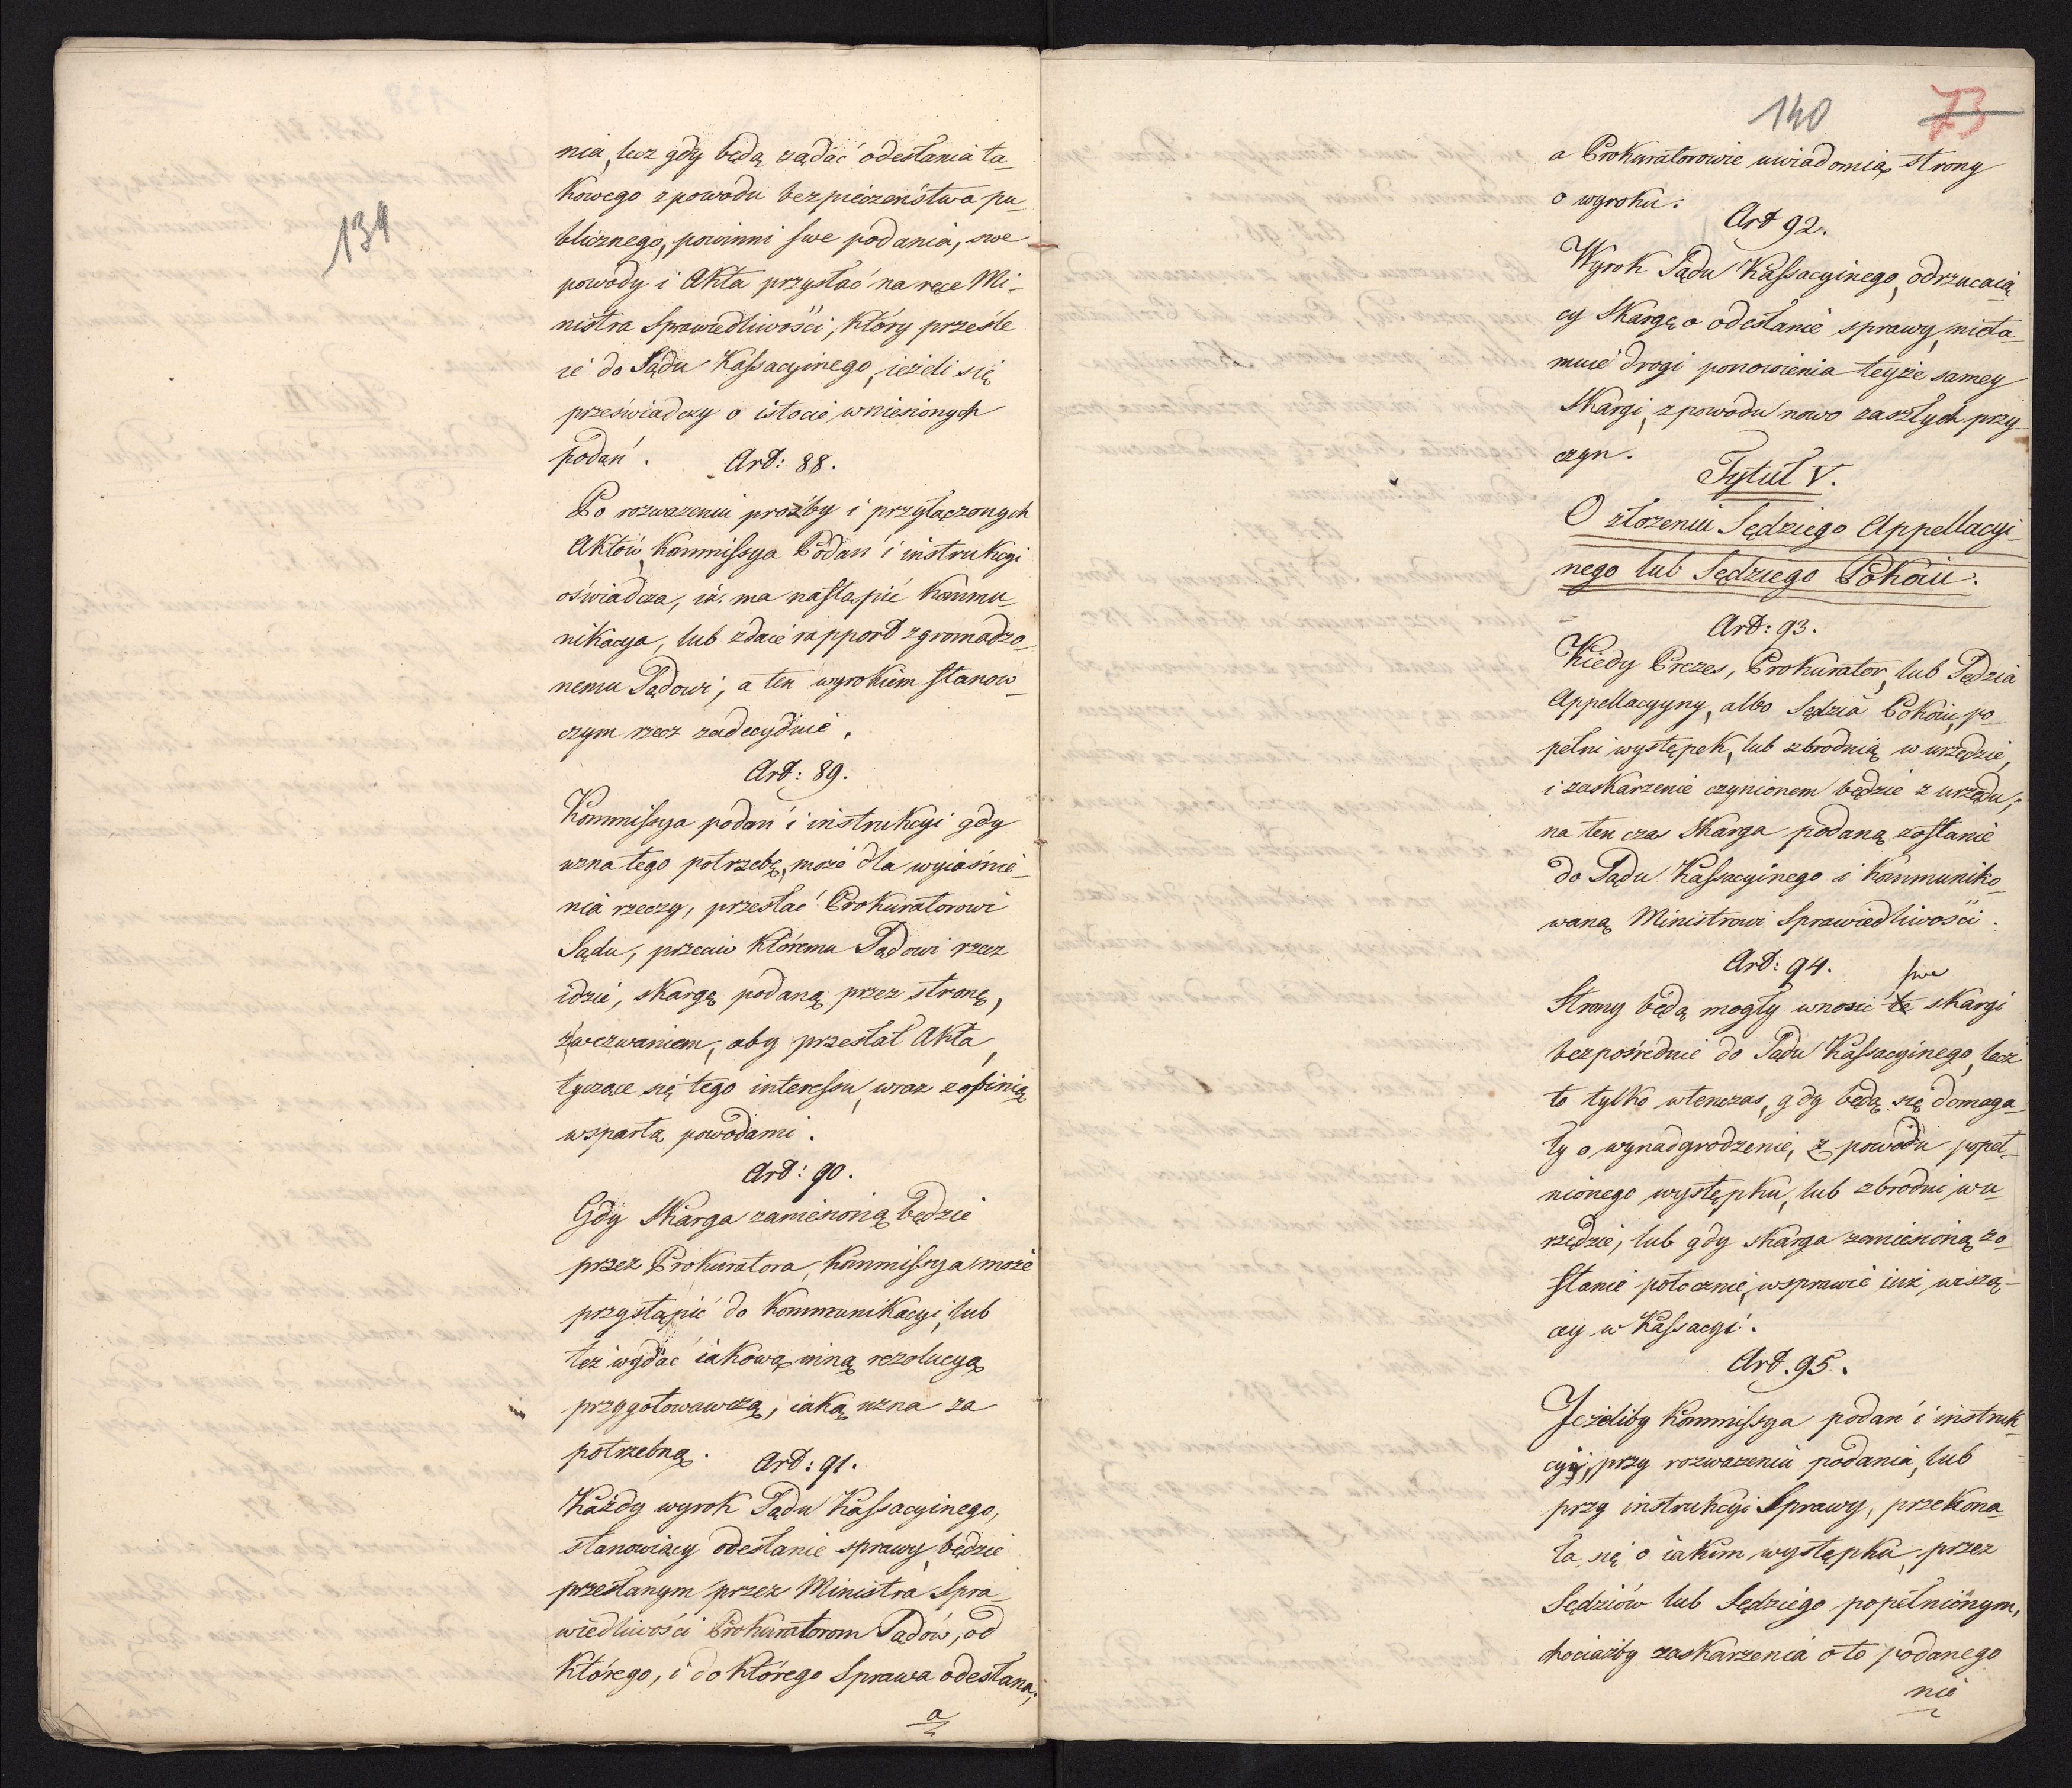 139
nia, lecz gdy będą żądać odesłania ta-
kowego z powodu bezpieczeństwa pu-
blicznego, powinni swe podania, swe
powody i Akta przysłać na ręce Mi-
nistra Sprawiedliwości, który prześle
ie do Sądu Kassacyinego, ieżeli się
przeświadczy o istocie wniesionych
podań.
Art: 88.
Po rozważeniu prożby i przyłączonych
Aktów, Kommissya Podań i instrukcyi
oświadcza, iż ma nastąpić kommu-
nikacya, lub zdaie rapport zgromadzo-
nemu Sądowi, a ten wyrokiem stanow-
czym rzecz zadecyduie.
Art: 89.
Kommissya podań i instrukcyi gdy
uzna tego potrzebę, może dla wyiaśnie-
nia rzeczy, przesłać Prokuratorowi
Sądu, przeciw któremu Sądowi rzecz
idzie, skargę podaną przez stronę,
z wezwaniem, aby przesłał Akta,
tyczące się tego interessu, wraz z opinią
wspartą powodami.
Art: 90.
Gdy Skarga zaniesioną będzie
przez Prokuratora, Kommissya może
przystąpić do Kommunikacyi, lub
też wydać iakową inną rezolucyą
przygotowawczą, iaką uzna za
potrzebną.
Art: 91.
Każdy wyrok Sądu Kassacyinego,
stanowiący odesłanie sprawy, będzie
przesłanym przez Ministra Spra-
wiedliwości Prokuratorom Sądów, od
którego, i do którego Sprawa odesłana;
a
140 73
a Prokuratorowie uwiadomią strony
o wyroku.
Art 92.
Wyrok Sądu Kassacyinego, odrzucaią-
cy Skargę o odesłanie sprawy, nieta-
muie drogi ponowienia teyże samey
Skargi, z powodu nowo zaszłych przy-
czyn.
Tytuł V.
O złożeniu Sędziego Appellacyi-
nego lub Sędziego Pokoiu.
Art: 93.
Kiedy Prezes, Prokurator, lub Sędzia
Appellacyyny, albo Sędzia Pokoiu, po-
pełni występek, lub zbrodnią w urzędzie,
i zaskarżenie czynionem będzie z urzędu;
na ten czas Skarga podaną zostanie
do Sądu Kassacyinego i kommuniko-
waną Ministrowi Sprawiedliwości.
Art: 94.
swe
Strony będą mogły wnosić te skargi
bezpośrednie do Sądu Kassacyinego, lecz
to tylko wtenczas, gdy będą się domaga-
ły o wynadgrodzenie, z powodu popeł-
nionego występku, lub zbrodni w u-
rzędzie, lub gdy skarga zaniesioną zo-
stanie potocznie, w sprawie iuż wiszą-
cey w Kassacyi.
Art. 95.
Jeżeliby Kommissya podań i instruk-
cyi, przy rozważeniu podania, lub
przy instrukcyi Sprawy, przekona-
ła się o iakim występku, przez
Sędziów lub Sędziego popełnionym,
chociażby zaskarżenia o to podanego
nie